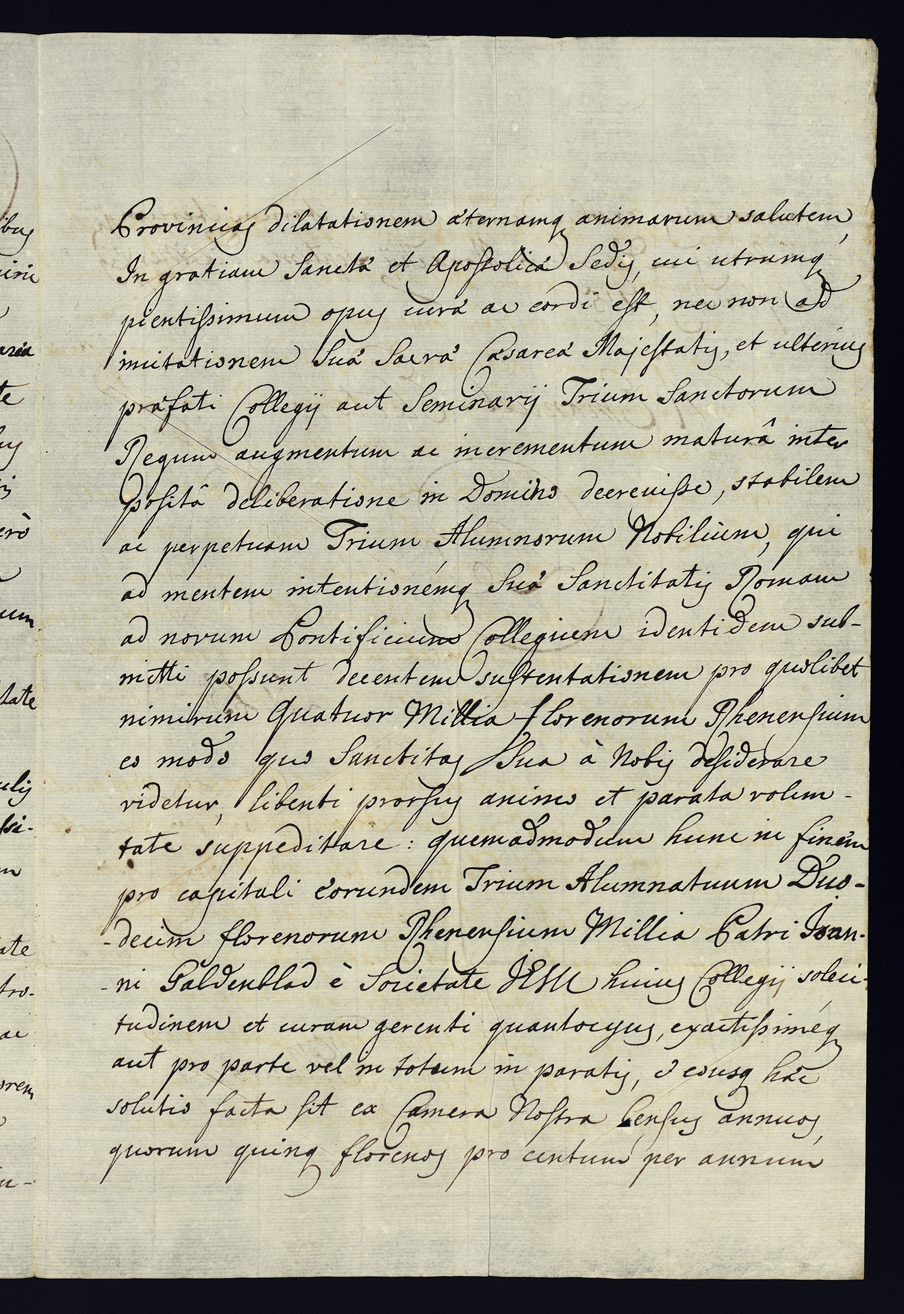 Provincias dilatationem æternamq animarum salutem,
In gratiam Sanctæ et Apostolicæ Sedis, cui utrumq
pientissimum opus curæ ac cordi est, nec non ad
imitationem Suæ Sacræ Cæsareæ Majestatis, et ulterius
præfati Collegij aut Seminarij Trium Sanctorum
Regum augmentum ac incrementum maturâ inter
positâ deliberatione in Domino decrevisse, stabilem
ac perpetuam Trium Alumnorum Nobilium, qui
ad mentem intentionémq Suæ Sanctitatis Romam
ad novum Pontificium Collegium identidem sub-
mitti possunt decentem sustentationem pro quolibet
nimirum Quatuor Millia florenorum Rhenensium
eo modo quo Sanctitas Sua à Nobis desiderare
videtur, libenti prorsus animo et parata volun-
tate suppeditare: quemadmodum hunc in finem
pro capitali eorundem Trium Alumnatuum Duo-
-decim florenorum Rhenensium Millia Patri Joan-
-ni Galdenblad è Societate JESU huius Collegij solici-
tudinem et curam gerenti quantocyus, exactissiméq
aut pro parte vel in totum in paratis, eousq hæc
solutio facta sit ex Camera Nostra Census annuos,
quorum quinq florenos pro centum per annum